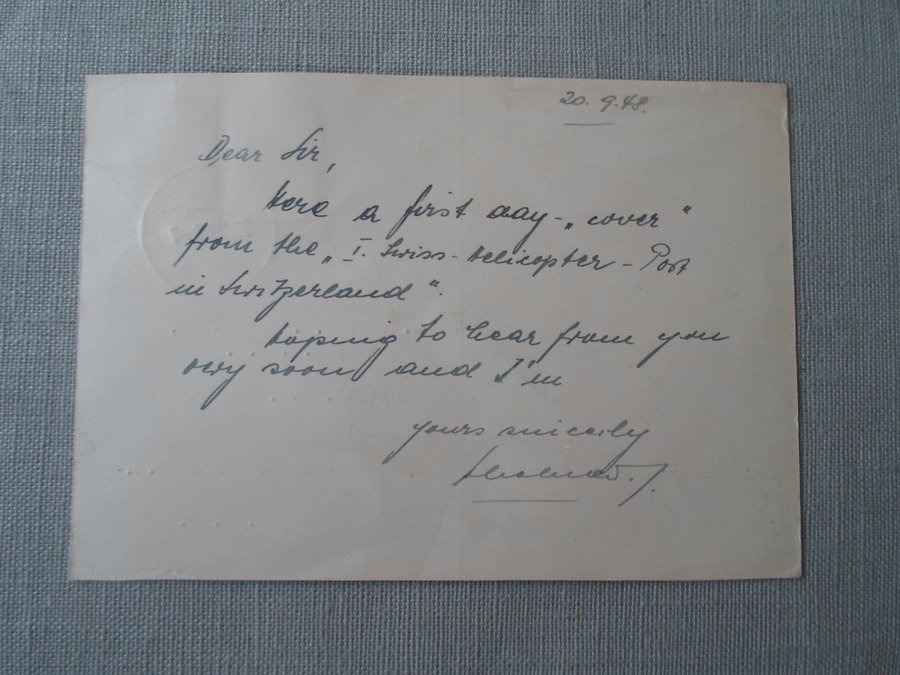 20. 9. 48.
Dear Sir,
Here a first day - „cover"
from the „I. Swiss - Helicopter - Post
in Switzerland".
Hoping to hear from you
very soon and I'm
yours sincerly